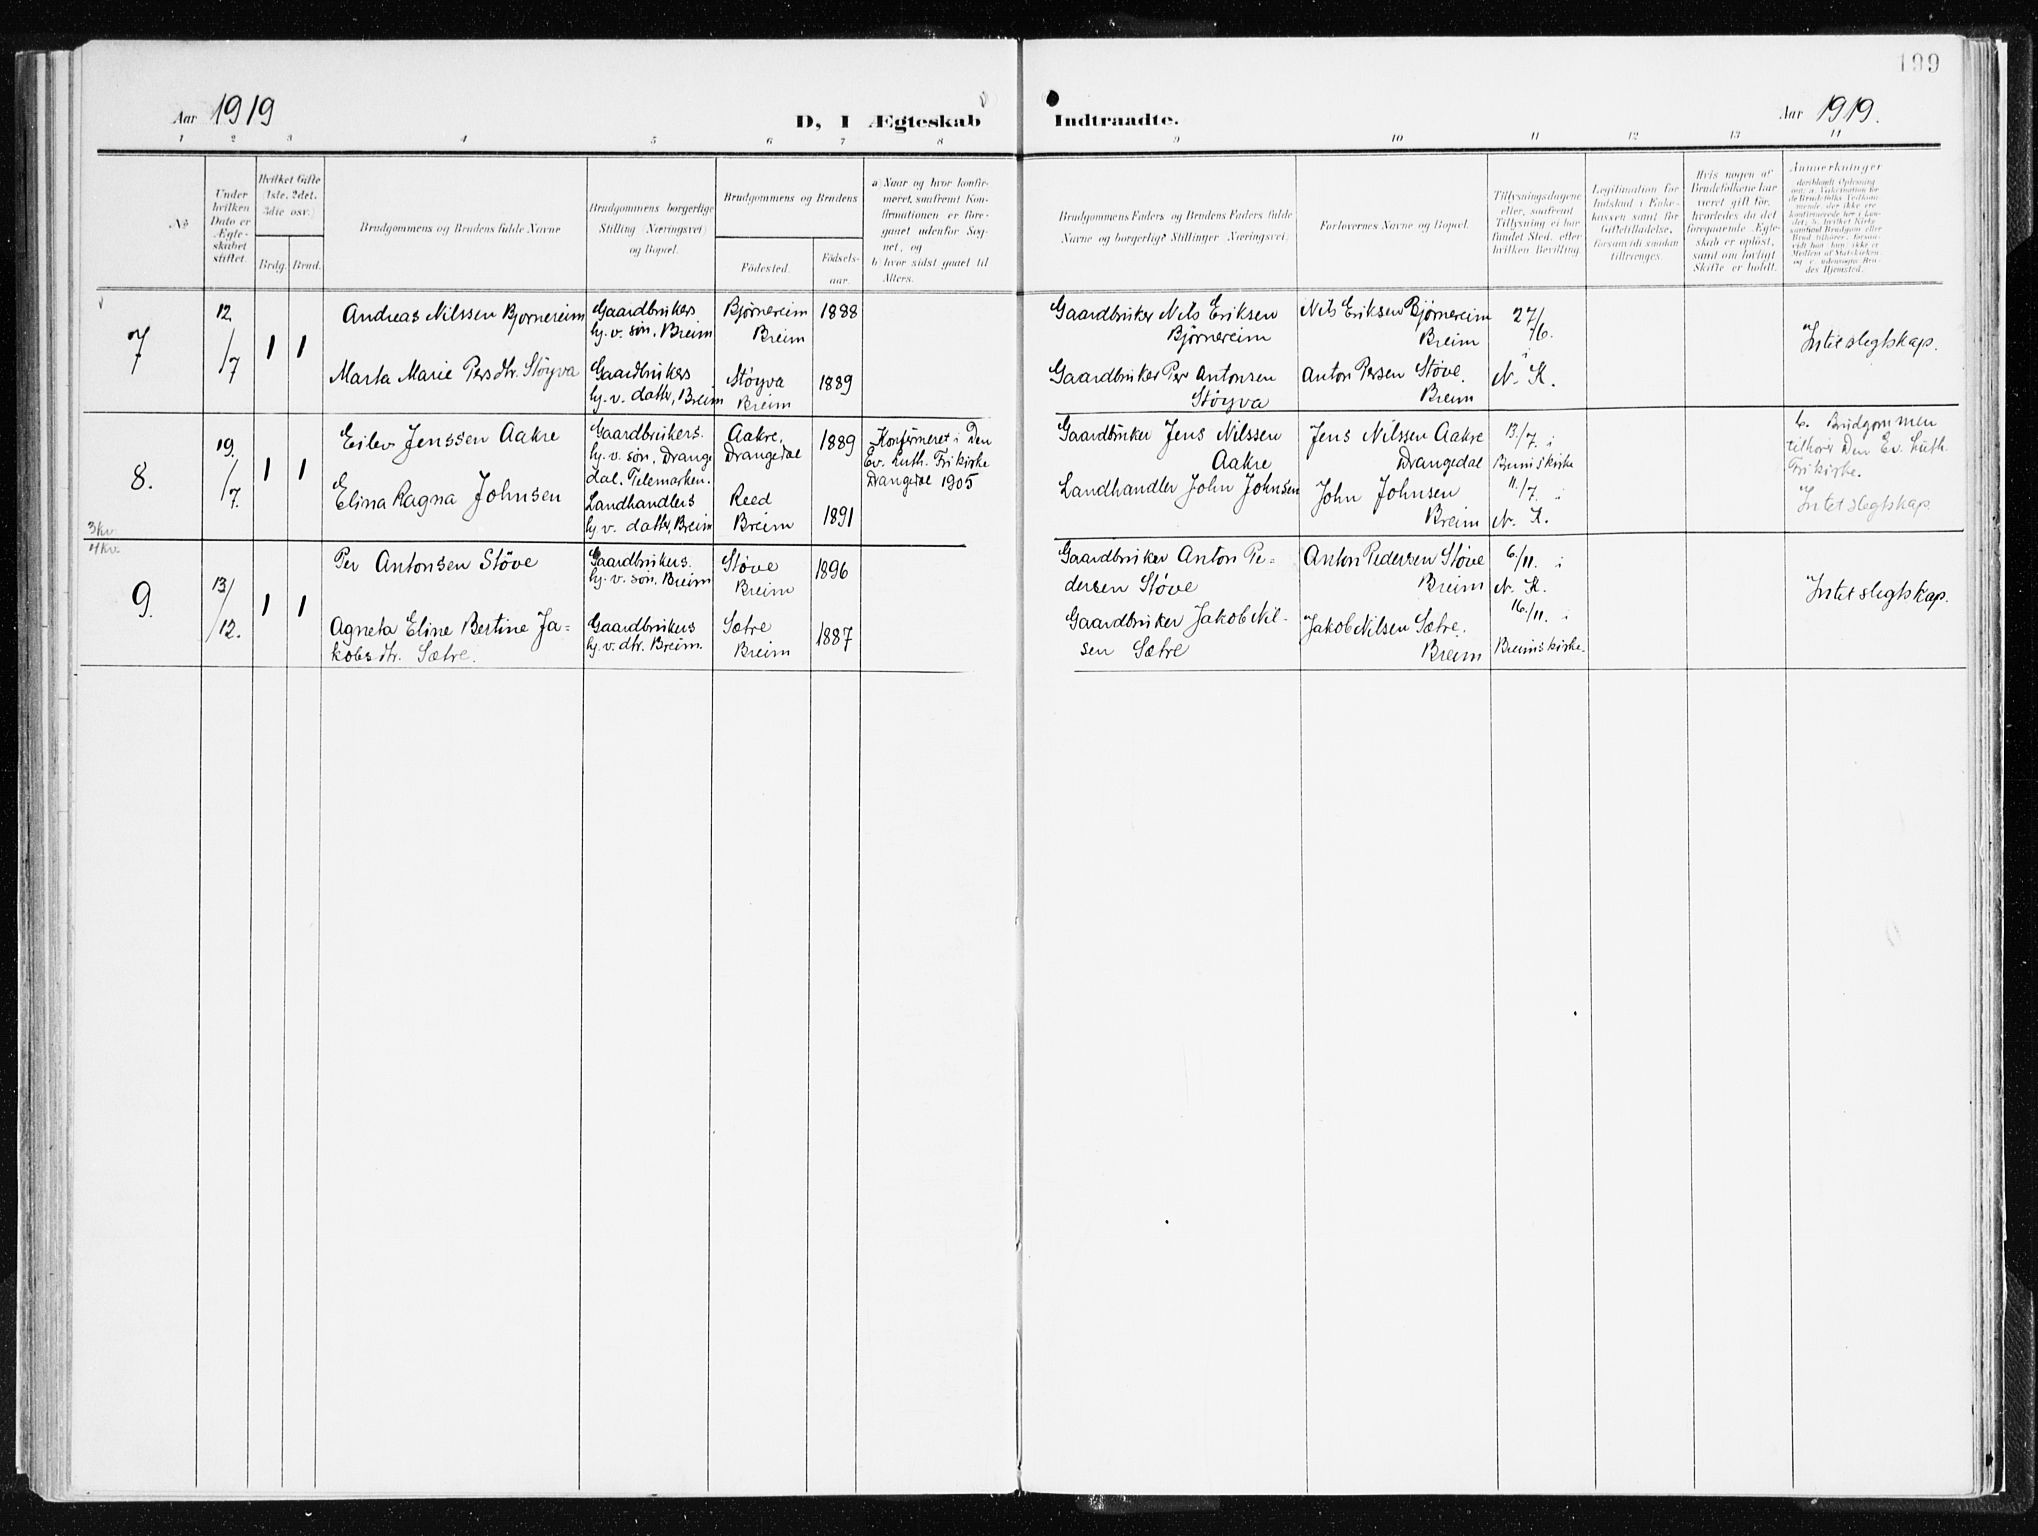 199
Aar 1919
D, I Ægteskab
Indtraadte.
Aar 1919.
1 2 3 4 5 6 7 8 9 10 11 12 13 14
No
Under
hvilken
Dato er
Ægte-
skabet
stiftet.
Hvilket Gifte
1ste, 2det,
3die osv.)
Brdg.
Brud.
Brudgommens og Brudens fulde Navne
Brudgommens borgerlige
Stilling (Næringsvei)
og Bopæl.
Brudgommens og Brudens
Födested.
Födsels-
aar.
a) Naar og hvor konfir-
meret, samfremt Kon-
firmationen er fore-
gaaet udenfor Sog-
net, og
b) hvor sidst gaaet til
Alters.
Brudgommens Faders og Brudens Faders fulde
Navne og borgerlige Stillinger (Næringsvei)
Forlovernes Navne og Bopæl.
Tillysningsdagene
eller, samfremt
Tillysning ei har
fundet Sted, efter
hvilken Bevilling
Legitimation for
Indskud i Enke-
kassen samt for
Giftetilladelse,
forsaavidt saadan
tiltrænges.
Hvis nogen af
Brudefolkene har
været gift før,
hvorledes da det
foregaaende Ægte-
skab er opløst,
samt om lovligt
Skifte er holdt.
Anmerkninger
7
12/7
1 1
Andreas Nilssen Bjørnereim
Gaardbrukers
hj. v. søn, Breim
Bjørnereim
Breim
1888
Gaardbruker Nils Eriksen
Bjørnereim
Nils Eriksen Bjørnereim
Breim
27/6.
i
N. K.
Intet slegtskap.
Marta Marie Persdtr. Støyva
Gaardbrukers
hj. v. datter, Breim
Støyva
Breim
1889
Gaardbruker Per Antonsen
Støyva
Anton Persen Støve.
Breim
8.
19./7.
1 1
Eilev Jenssen Aakre
Gaardbrukers.
hj. v. søn, Drange
dal. Telemarken.
Aakre,
Drangedal
1889
Konfirmeret i Den
Ev. Luth. Frikirke
Drangedal 1905
Gaardbruker Jens Nilssen
Aakre
Jens Nilssen Aakre
Drangedal
13/7. i
Breimskirke
b. Brudgommen
tilhører Den Ev. Luth.
Frikirke.
Elina Ragna Johnsen
Landhandlers
hj v. datter, Breim
Reed
Breim
1891
Landhandler John Johnsen
John Johnsen
Breim
11/7. i
N. K.
Intet slegtskap.
3 kv.
4 kv.
9.
13/12.
1 1
Per Antonsen Støve
Gaardbrukers.
hj. v. søn, Breim
Støve
Breim
1896
Gaardbruker Anton Pe-
dersen Støve
Anton Pedersen Støve
Breim
6/11. i
N. K.
Intet slegtskap.
Agneta Eline Bertine Ja-
kobsdtr. Sætre.
Gaardbrukers
hj. v. dtr. Breim.
Sætre
Breim
1887
Gaardbruker Jakob Nil-
sen Sætre
Jakob Nilsen Sætre.
Breim
16./11. i
Breimskirke.